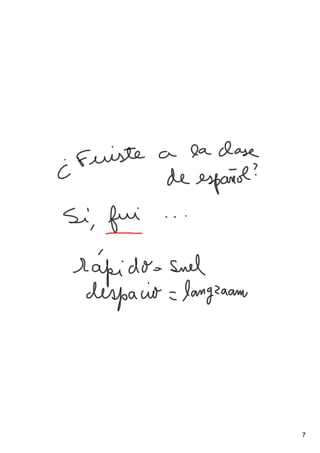 ¿Fuiste a la clase
de español?
Si, fui ...
rápido = snel
despacio = langzaam
7